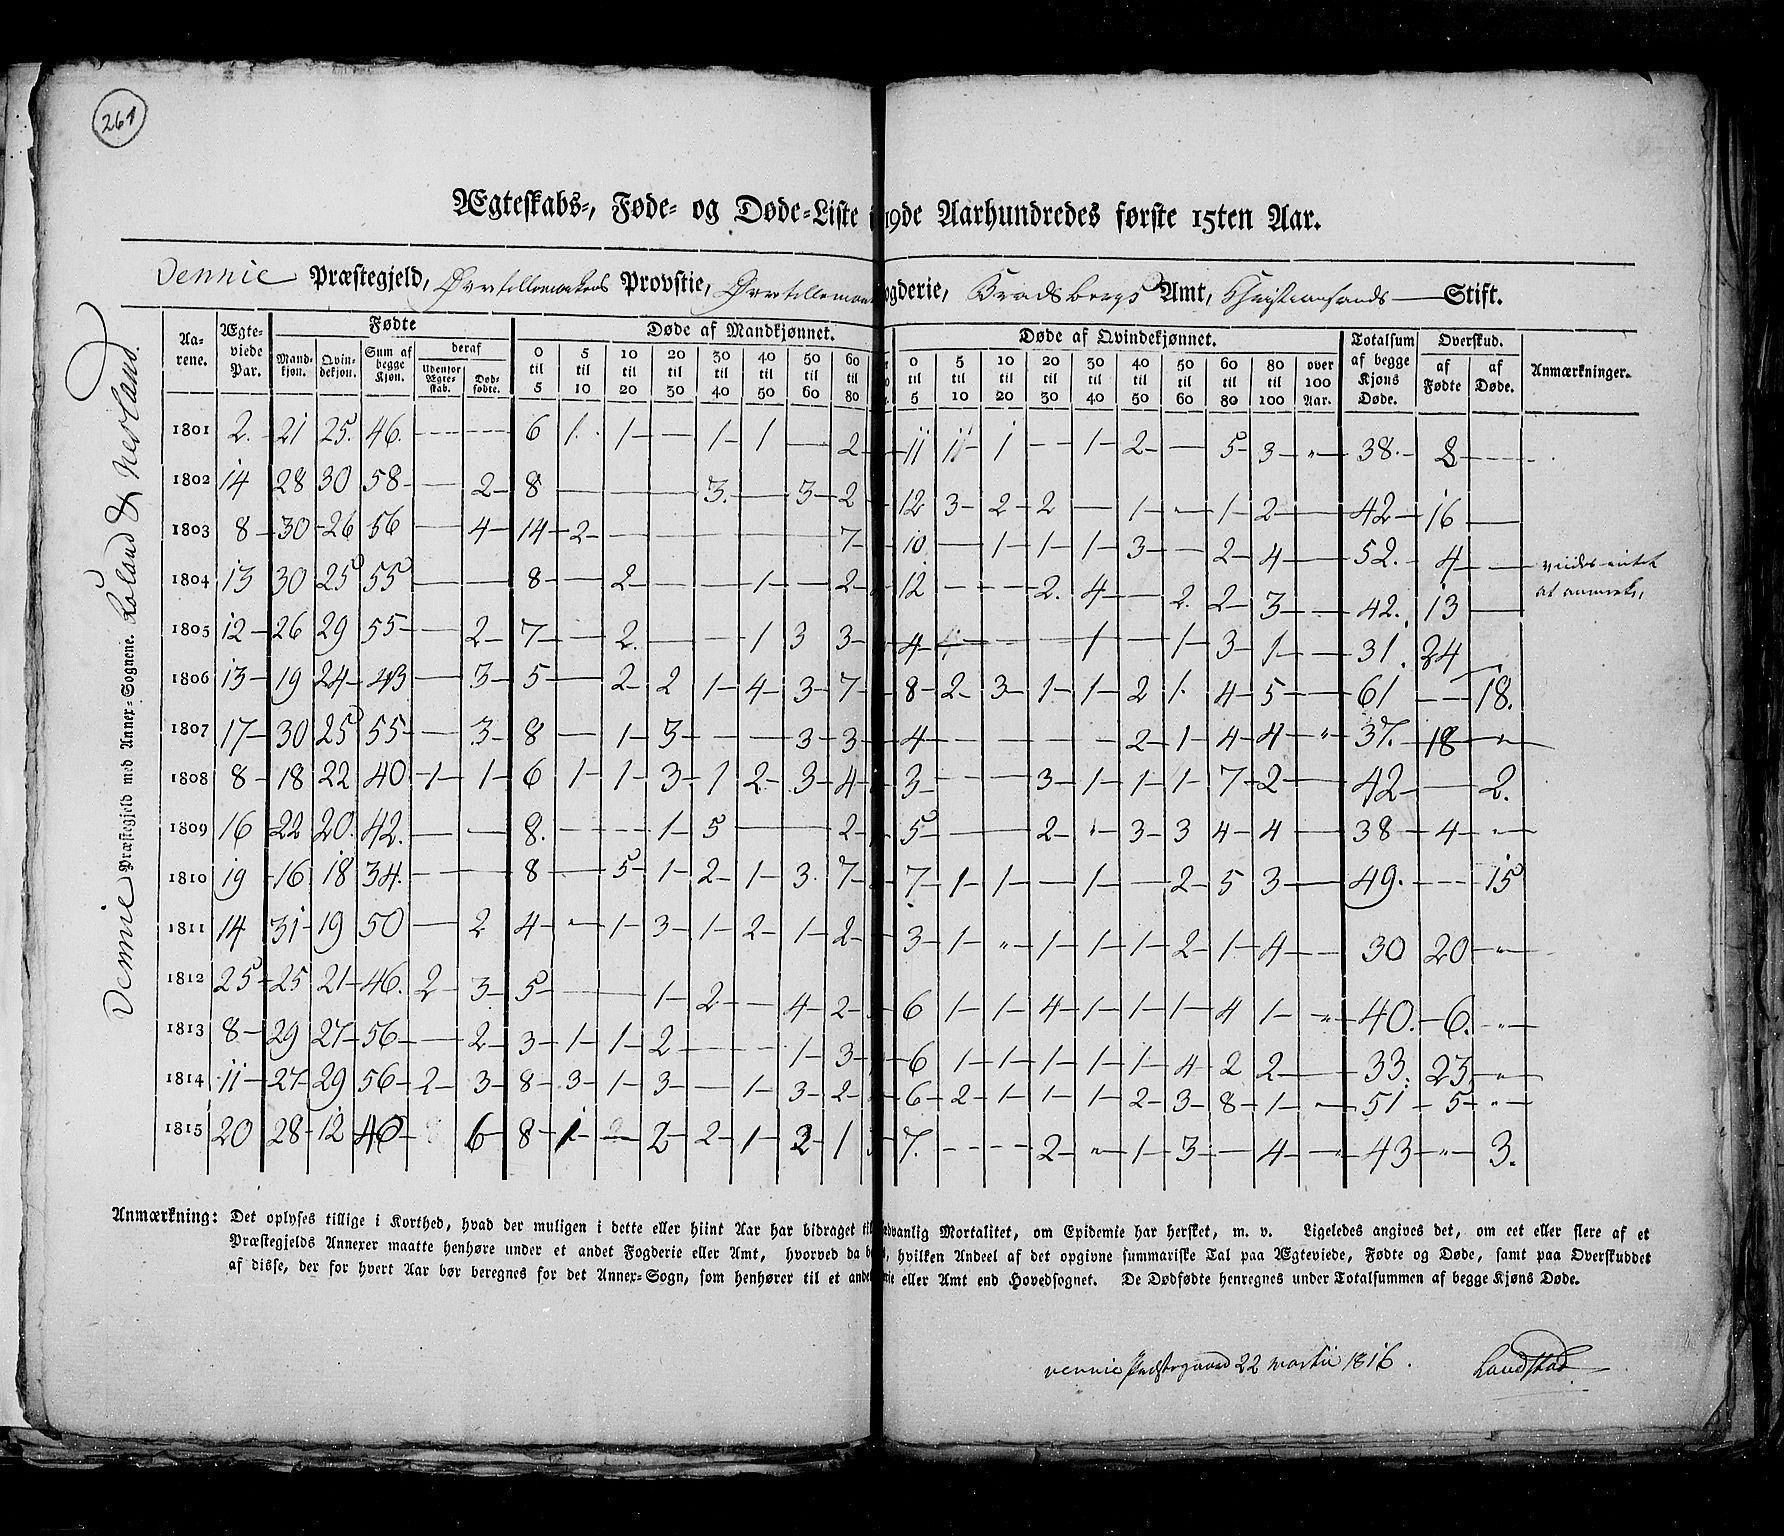 261
Ægteskabs-, Føde- og Døde-Liste i 19de Aarhundredes første 15ten Aar.
Vennie Præstegjeld, Øvretellemarkens Provstie, Øvretellemar ogderie, Bradsbergs Amt, Christiansands Stift.
Vennie Præstegjeld med Annex-Sognene.
Aarene. Ægteviede Par. Fødte Døde af Mandkjønnet. Døde af Qvindekjønnet. Totalsum af begge Kjøns Døde. Overskud. Anmærkninger.
Mandkjøn. Qvindekjøn. Sum af begge Kjøn. deraf Udenfor Ægteskab. Dødfødte. 0 til 5 5 til 10 10 til 20 20 til 30 30 til 40 40 til 50 50 til 60 60 til 80 0 til 5 5 til 10 10 til 20 20 til 30 30 til 40 40 til 50 50 til 60 60 til 80 80 til 100 over 100 Aar. af Fødte af Døde.
1801 2. 21 25. 46. — — 6 1. 1 — 1 1 — 2 11 11 1 — 1 2 — 5 3 „ 38. 8 —
1802 14 28 30 58 — 2 8 — — — 3. — 3 2 12 3 2 2 — 1 — 1 2 — 42 16 —
1803 8 30 26 56 — 4 14 2 — — — — — 7 10 — 1 1 1 3 — 2 4 — 52. 4 —
1804 13 30 25 55 — — 8 — 2 — — 1 — 2 12 — — 2. 4 — 2. 2 3 — 42. 13 —
1805 12 26 29 55 — 2 7 — 2. — — 1 3 3 4 — — — 1 — 1 3 1 — 31. 24 —
1806 13 19 24 43 — 3 5 — 2 2 1 4 3 7 8 2 3 1 1 2 1. 4 5 — 61 — 18.
1807 17 30 25 55 — 3 8 — 1 3 — — 3 3 4 — — — — 2 1 4 4 „ 37. 18 „
1808 8 18 22 40 1 1 6 1 1 3 1 2 3 4 3 — — 3 1 1 1 7 2 — 42 — 2.
1809 16 22 20. 42. — — 8. — — 1 5 — — 2 5 — — 2 „ 3 3 4 4 — 38 4 „
1810 19 16 18 34. — — 8 — 5 1 2 1 3. 7 7 1 1 — 1 — 2 5 3 — 49. — 15
1811 14 31 19 50 — 2 4 „ 1 3 1 2 1 2 3 1 „ 1 1 1 2 1 4 — 30 20 „
1812 25 25 21 46. 2 3 5 — — 1 2 — 4 2 6 1 1 4 1 1 1 4 1 „ 40. 6. „
1813 8 29 27 56 — 2 3 1 1 2 — — 1 3 6 1 1 1 1 1 4 2 2 — 33. 23. „
1814 11 27 29 56 2 3 8 3 1 3 — 1 3 2 6 2 1 1 1 2 3 8 1 „ 51 5 „
1815 20 28 12 40 6 8 1 2 2 1 2 1 7. — — 2 „ 1 3 — 4 „ 43 „ 3.
Anmærkning: Det oplyses tillige i Korthed, hvad der muligen i dette eller hiint Aar har bidraget til dvanlig Mortalitet, om Epidemie har hersket, m. v. Ligeledes angives det, om eet eller flere af et
Præstegjelds Annexer maatte henhøre under et andet Fogderie eller Amt, hvorved da be , hvilken Andeel af det opgivne summariske Tal paa Ægteviede, Fødte og Døde, samt paa Overskuddet
af disse, der for hvert Aar bør beregnes for det Annex-Sogn, som henhører til et andet rie eller Amt end Hovedsognet. De Dødfødte henregnes under Totalsummen af begge Kjøns Døde.
Vennie Præstegaard 22 Martii 1816. Landstad